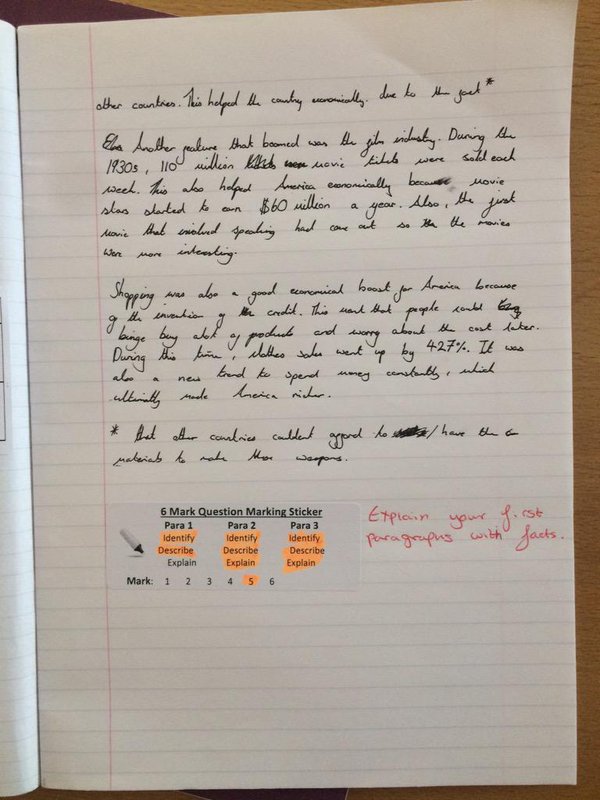 other countries. This helped the country economically. due to the fact *
Another feature that boomed was the film industry. During the
1930s, 110 million movie tickets were sold each
week. This also helped America economically because movie
stars started to earn $60 million a year. Also, the first
movie that involved speaking had come out so the movies
were more interesting.
Shopping was also a good economical boost for America because
of the invention of credit. This ment that people could
binge buy alot of products and worry about the cost later.
During this time, clothes sales went up by 427%. It was
also a new trend to spend money constantly, which
ultimatly made America richer.
* that other countries couldent afford to /have the
materials to make these weapons.
6 Mark Question Marking Sticker
Para 1 Para 2 Para 3
Identify Identify Identify
Describe Describe Describe
Explain Explain Explain
Mark: 1 2 3 4 5 6
Explain your first
paragraphs with facts.